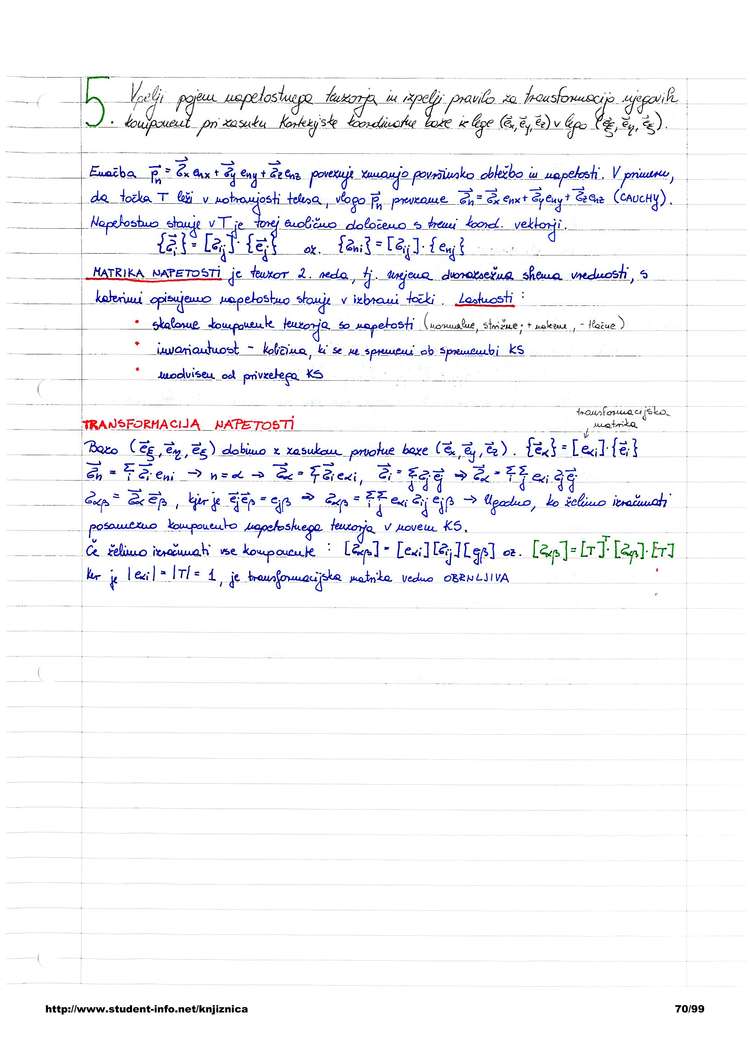 5. Vpelji pojem napetostnega tenzorja in izpelji pravilo za transformacijo njegovih
komponent pri zasuku kartezijske koordinatne baze iz lege (e⃗x, e⃗y, e⃗z) v lego (e⃗ξ, e⃗η, e⃗ζ).
Enačba p⃗n = σ⃗x enx + σ⃗y eny + σ⃗z enz povezuje zunanjo površinsko obtežbo in napetosti. V primeru,
da točka T leži v notranjosti telesa, vlogo p⃗n prevzame σ⃗n = σ⃗x enx + σ⃗y eny + σ⃗z enz (CAUCHY).
Napetostno stanje v T je torej enolično določeno s tremi koord. vektorji.
{σ⃗i} = [σij]·{e⃗j} oz. {σni} = [σij]·{enj}
MATRIKA NAPETOSTI je tenzor 2. reda, tj. urejena dvorazsežna shema vrednosti, s
katerimi opisujemo napetostno stanje v izbrani točki. Lastnosti:
• skalarne komponente tenzorja so napetosti (normalne, strižne; + natezne, - tlačne)
• invariantnost - količina, ki se ne spremeni ob spremembi KS
• neodvisen od privzetega KS
transformacijska
matrika
TRANSFORMACIJA NAPETOSTI
Bazo (e⃗ξ, e⃗η, e⃗ζ) dobimo z zasukom prvotne baze (e⃗x, e⃗y, e⃗z). {e⃗α} = [eαi]·{e⃗i}
σ⃗n = Σi σ⃗i eni → n = α → σ⃗α = Σi σ⃗i eαi, σ⃗i = Σj σij e⃗j ⇒ σ⃗α = Σi Σj eαi σij e⃗j
σαβ = σ⃗α e⃗β, kjer je e⃗j e⃗β = ejβ ⇒ σαβ = Σi Σj eαi σij ejβ → Ugodno, ko želimo izračunati
posamezno komponento napetostnega tenzorja v novem KS.
Če želimo izračunati vse komponente: [σαβ] = [eαi][σij][ejβ] oz. [σαβ] = [T]ᵀ·[σαβ]·[T]
Ker je |eαi| = |T| = 1, je transformacijska matrika vedno OBRNLJIVA
http://www.student-info.net/knjiznica 70/99